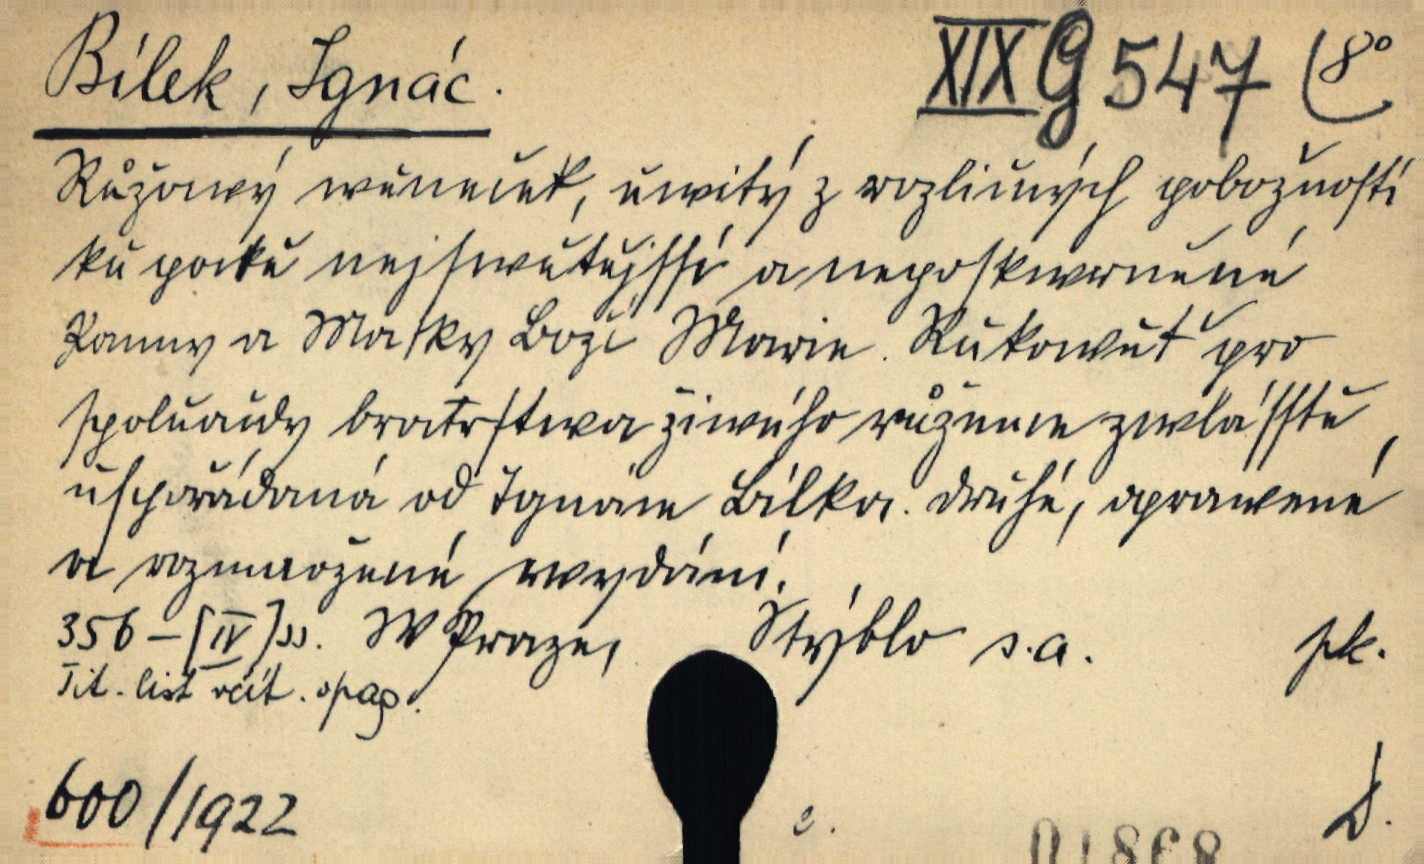 Bílek, Ignác.
XIX G 547 (8°
Růžowý wěneček, uwitý z rozličných pobožností
ku poctě nejswětějssí a neposkwrněné
Panny a Matky Boží Marie. Rukowěť pro
spoluaudy bratrstwa žiwého růžence zwlásstě
uspořádaná od Ignáce Bílka. Druhé, oprawené
a rozmnožené wydání.
356 – [IV] ss. W Praze, Stýblo s.a. pk.
Tit. list rčit. opap.
600/1922 c. D.